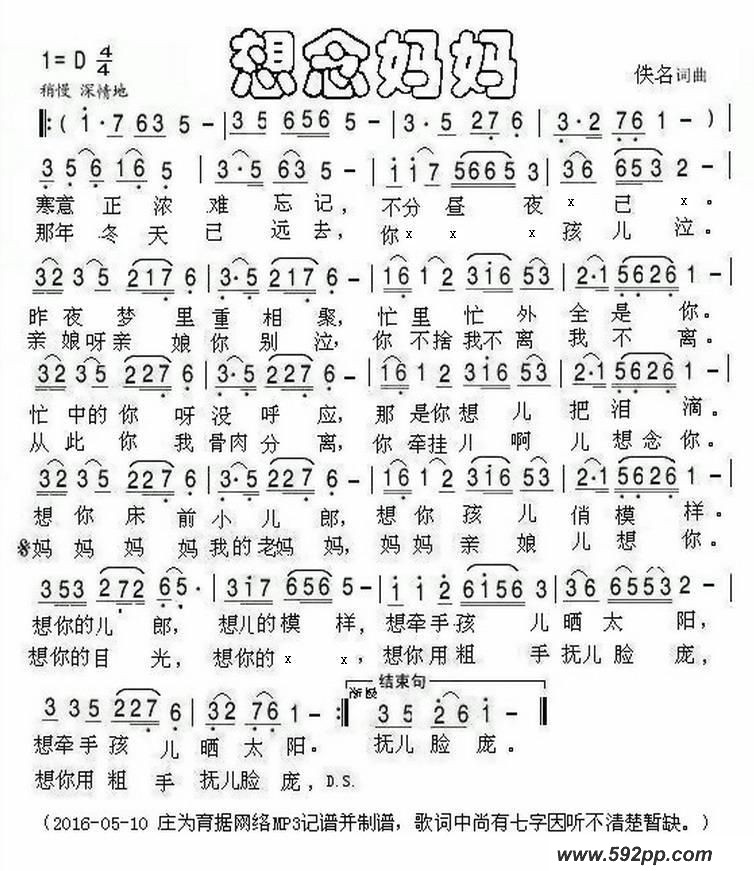 想念妈妈
1=D 4/4
稍慢 深情地
佚名词曲
‖:( i·7 63 5 - | 35 656 5 - | 3·5 27 6 | 3·2 76 1 - ) |
356 16 5 | 3·5 63 5 | i i i7 5665 3 | 36 653 2 - |
寒意正浓难忘记，不分昼夜x已x。
那年冬天已远去，你x x x孩儿泣。
32 35 217 6 | 3·5 217 6 - | 16 12 3i6 53 | 2·1 5626 1 - |
昨夜梦里重相聚，忙里忙外全是你。
亲娘呀亲娘你别泣，你不捨我不离我不离。
32 35 227 6 | 3·5 227 6 - | 16 12 3i6 53 | 2·1 5626 1 - |
忙中的你呀没呼应，那是你想儿把泪滴。
从此你我骨肉分离，你牵挂儿啊儿想念你。
32 35 227 6 | 3·5 227 6 - | 16 12 3i6 53 | 2·1 5626 1 - |
想你床前小儿郎，想你孩儿俏模样。
妈妈妈妈我的老妈妈，妈妈亲娘儿想你。
353 272 65· | 3i7 656 5 - | i i 2 6i56 3 | 36 6553 2 - |
想你的儿郎，想儿的模样，想牵手孩儿晒太阳，
想你的目光，想你的x x，想你用粗手抚儿脸庞，
结束句
渐慢
3 35 227 6 | 32 76 1 - :‖ 35 26 i - ‖
想牵手孩儿晒太阳。抚儿脸庞。
想你用粗手抚儿脸庞，D.S.
（2016-05-10 庄为育据网络MP3记谱并制谱，歌词中尚有七字因听不清楚暂缺。）
www.592pp.com